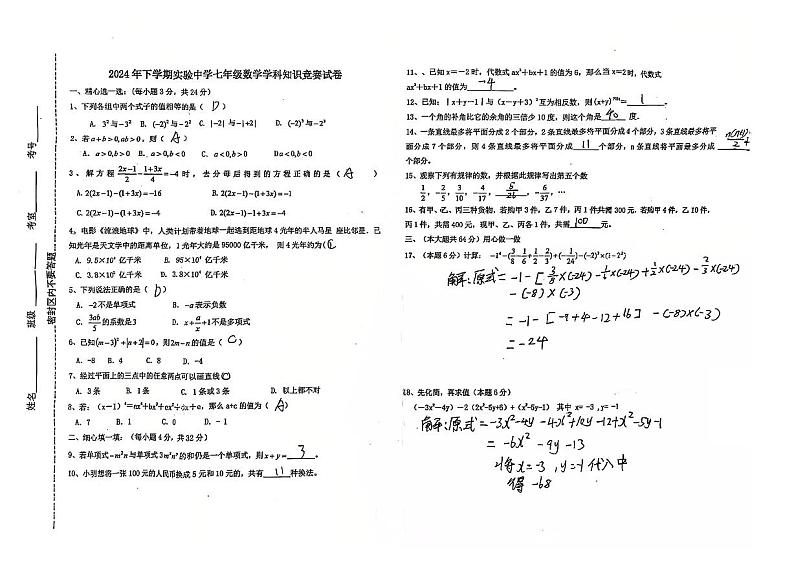 2024 年下学期实验中学七年级数学学科知识竞赛试卷
一、精心选一选:(每小题 3 分,共 24 分)
1、下列各组中两个式子的值相等的是( D )
A. 3²与-3² B. (-2)²与-2² C. |-2|与-|+2| D. (-2)³与-2³
2、若a+b>0,ab>0,则( A )
A. a>0,b>0 B. a<0,b<0 C. a<0,b>0 D a<0,b<0
3、解方程 (2x-1)/2 - (1+3x)/4 = -4 时,去分母后得到的方程正确的是( A )
A. 2(2x-1)-(1+3x)=-16 B. 2(2x-1)-(1+3x)=-1
C. 2(2x-1)-(1+3x)=-4 D. 2(2x-1)-1+3x=-4
4、电影《流浪地球》中,人类计划带着地球一起逃到距地球 4 光年的半人马星 座比邻星.已
知光年是天文学中的距离单位,1 光年大约是 95000 亿千米, 则 4 光年约为(C
A. 9.5×10⁴ 亿千米 B. 95×10⁴ 亿千米
C. 3.8×10⁵ 亿千米 D. 3.8×10⁴ 亿千米
5、下列说法正确的是( D )
A. -2不是单项式 B. -a 表示负数
C. 3ab/5 的系数是3 D. x+a/x+1不是多项式
6、已知(m-3)²+|n+2|=0,则2m-n的值是( C )
A. -8 B. 4 C. 8 D. -4
7、经过平面上的三点中的任意两点可以画直线
A. 3 条 B. 1条 C. 1 条或 3 条 D. 以上都不对
二、细心填一填:(每小题 4 分,共 32 分)
9、若单项式 与单项式 的和仍是一个单项式,则x+y= 3 .
10、小明想将一张 100 元的人民币换成 5 元和 10 元的,共有 11 种换法。
姓名
班级
考室
考号
密封区内不要答题
11、、已知 x=-2 时,代数式 ax³+bx+1 的值为 6,那么当 x=2 时,代数式
ax³+bx+1 的值为 -4 。
12、已知:|x+y-1|与(x-y+3)²互为相反数,则 = 1 .
13、一个角的补角比它的余角的三倍少 10 度,则这个角是 40 度.
14、一条直线最多将平面分成 2 个部分,2 条直线最多将平面分成 4 个部分,3 条直线最多将平
面分成 7 个部分,则 4 条直线最多将平面分成 11 个部分,n 条直线将平面最多分成
个部分.
15、观察下列有规律的数,并根据此规律写出第五个数
1/2,-2/5,3/10,-4/17, 5/26 ,-6/37,…
16、有甲、乙、丙三种货物,若购甲 3 件,乙 7 件,丙 1 件共需 300 元,若购甲 4 件,乙 10 件,
丙 1 件,共需 400 元,现甲、乙、丙各 1 件,共需 100 元。
三、(本大题共 64 分)用心做一做
17、(本题 6 分)计算: -1⁴-(3/8-1/6+1/2-2/3)÷(-1/24)-(-2)³×(1-2²)
解:原式=-1-[3/8×(-24)-1/6×(-24)+1/2×(-24)-2/3×(-24)
-(-8)×(-3)
=-1-[-9+4-12+16]-(-8)×(-3)
=-24
18、先化简,再求值(本题 6 分)
(-3x²-4y)-2(2x²-5y+6)+(x²-5y-1) 其中 x=-3,y=-1
=-6x²-9y-13
将x=-3,y=-1代入中
得 -68